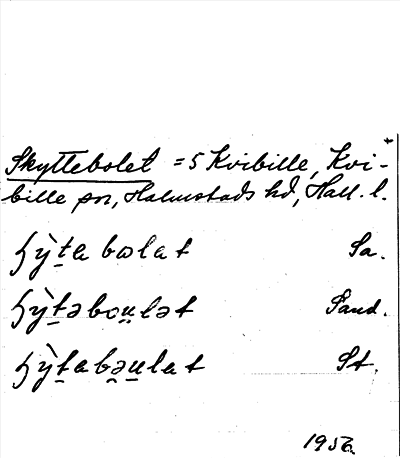 Skyttebolet = 5 Kvibille, Kvi-
bille sn, Halmstads hd, Hall. l.
ɧỳt̠a bɷlat Sa.
ɧỳt̠əbou̠lət Sand.
ɧỳt̠abə̯u̠lat St.